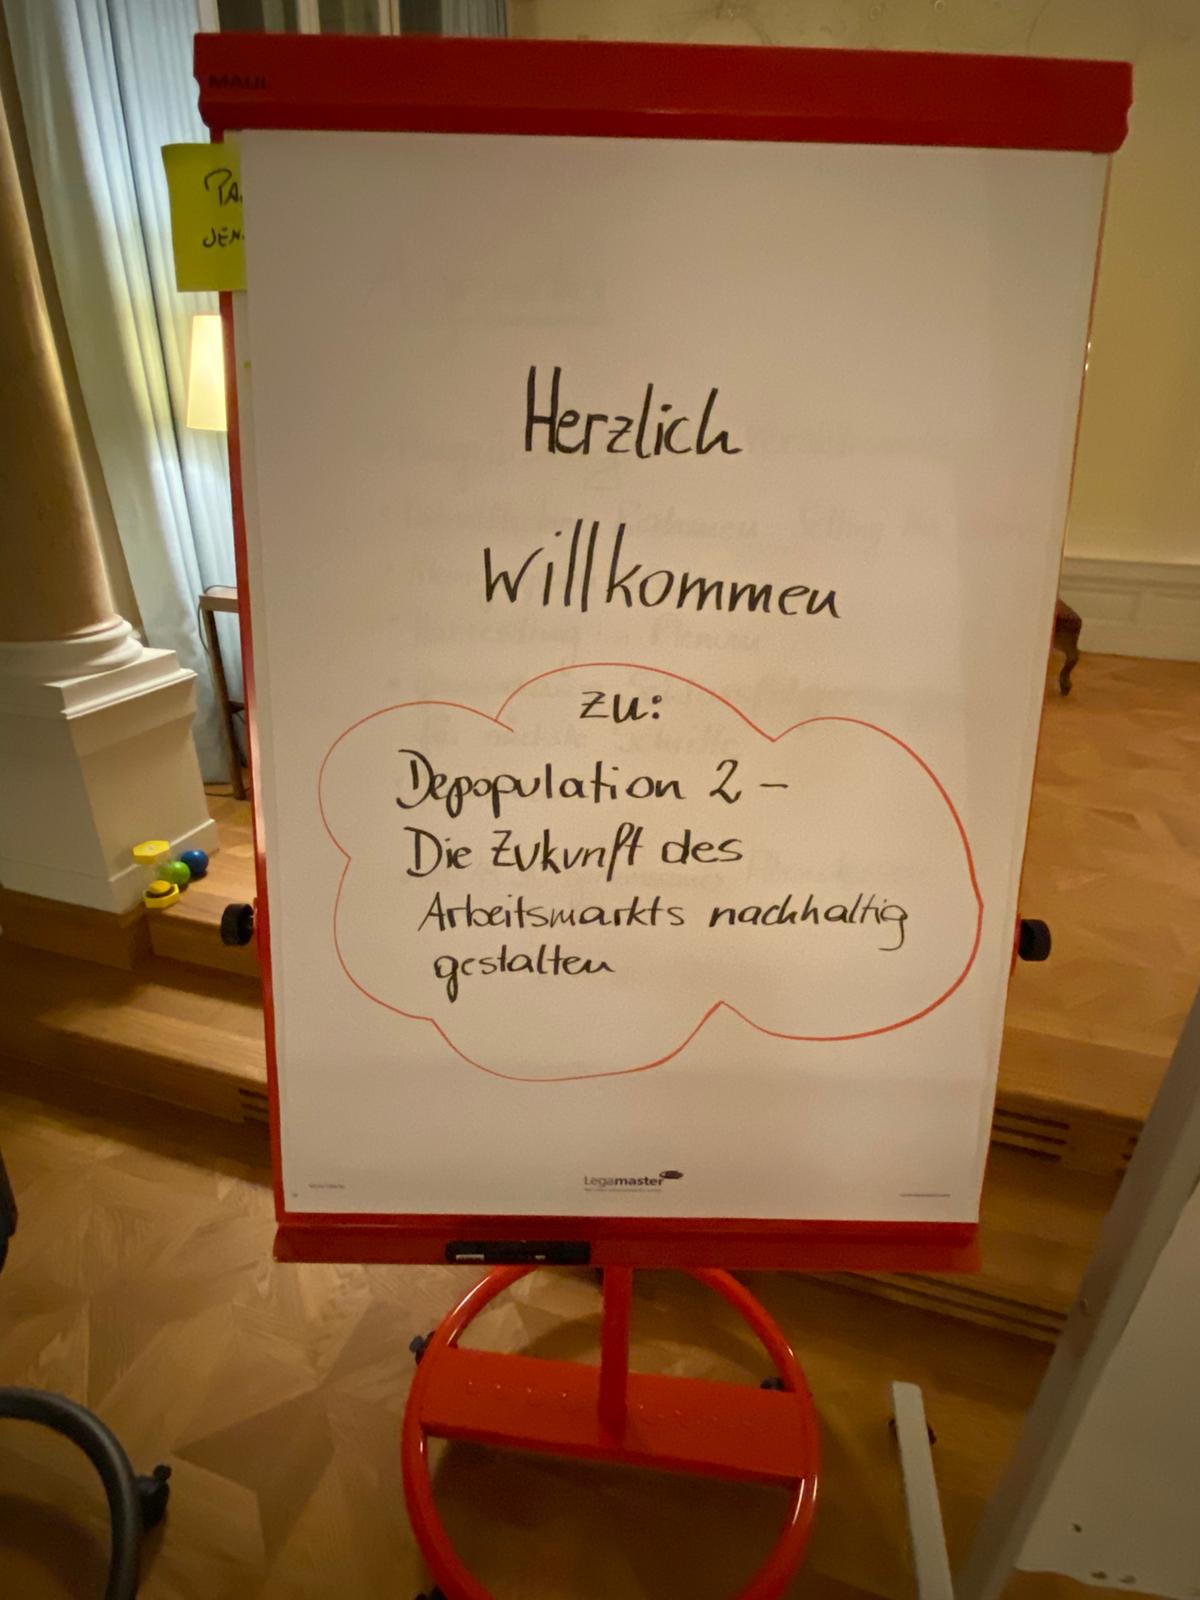 MAUL
Herzlich
Willkommen
zu:
Depopulation 2 –
Die Zukunft des
Arbeitsmarkts nachhaltig
gestalten
Legamaster